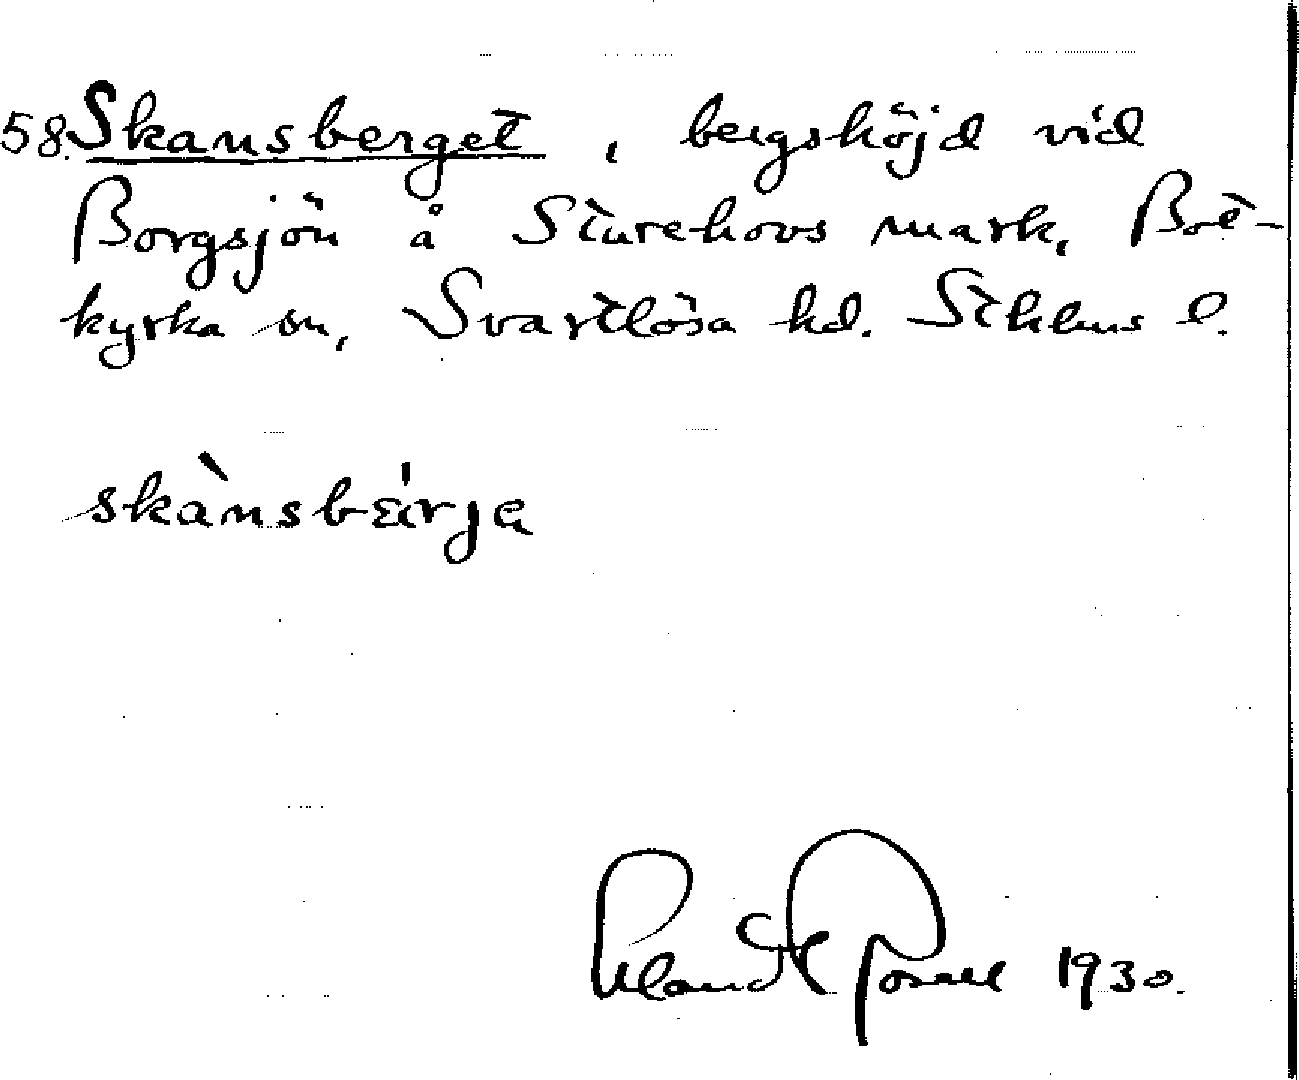 58. Skansberget, bergshöjd vid
Borgsjön å Sturehovs mark, Bot-
kyrka sn, Svartlösa hd. Sthlms l.
skànsbɛ́rja
1930.